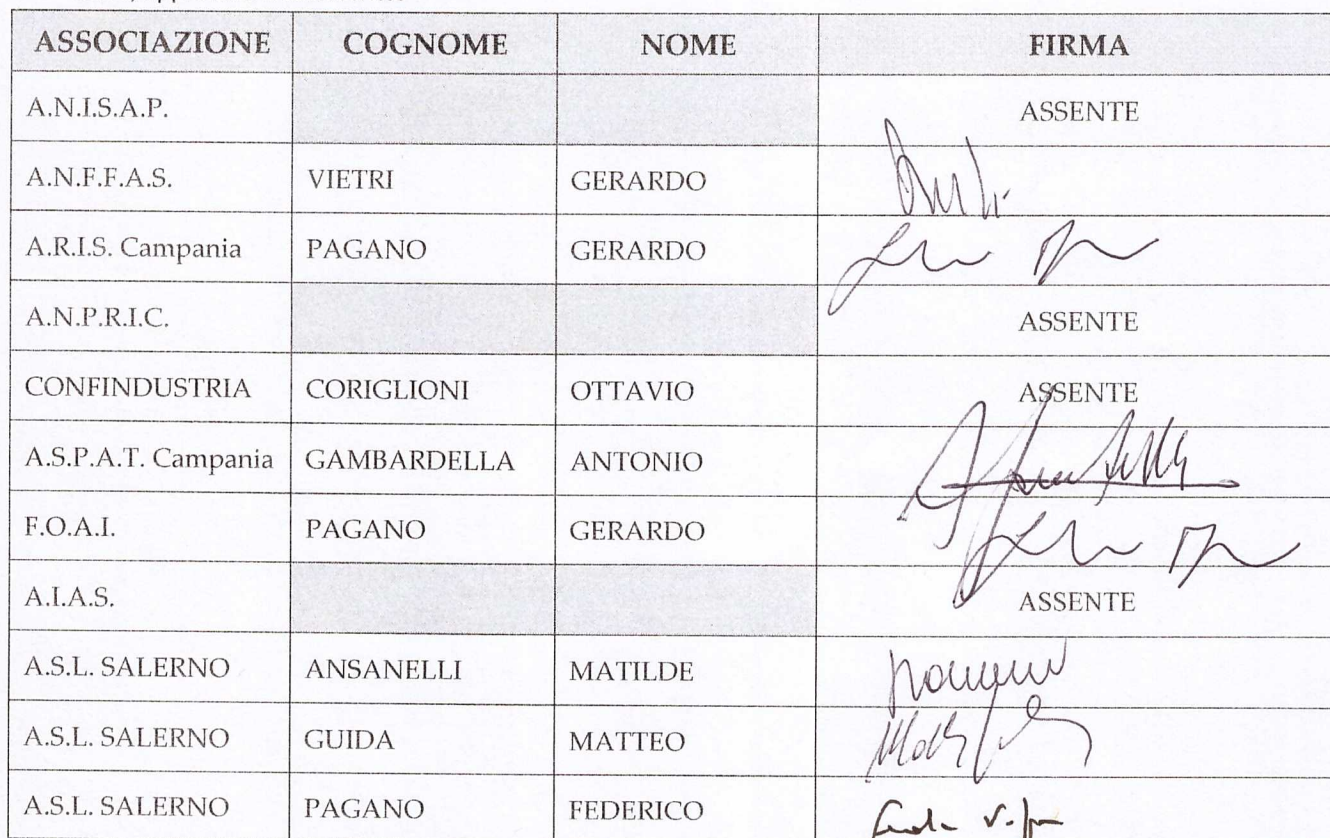 ASSOCIAZIONE COGNOME NOME FIRMA
A.N.I.S.A.P. ASSENTE
A.N.F.F.A.S. VIETRI GERARDO
A.R.I.S. Campania PAGANO GERARDO
A.N.P.R.I.C. ASSENTE
CONFINDUSTRIA CORIGLIONI OTTAVIO ASSENTE
A.S.P.A.T. Campania GAMBARDELLA ANTONIO
F.O.A.I. PAGANO GERARDO
A.I.A.S. ASSENTE
A.S.L. SALERNO ANSANELLI MATILDE
A.S.L. SALERNO GUIDA MATTEO
A.S.L. SALERNO PAGANO FEDERICO